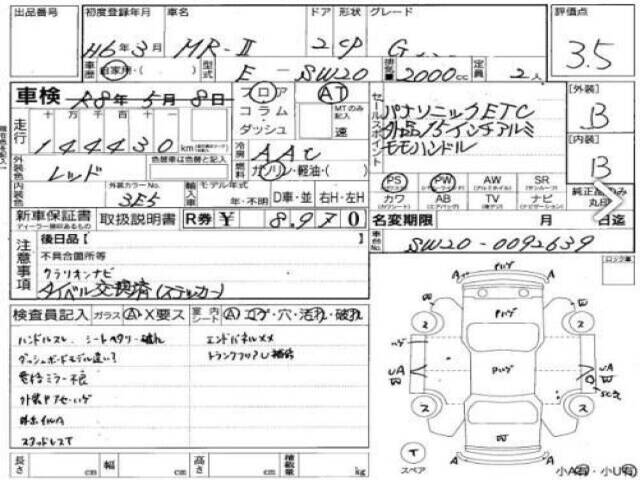 出品番号 初度登録年月 車名 ドア 形状 グレード 評価点
H6年3月 MR-II 2 CP G 3.5
車歴 自家用・( ) 型式 E - SW20 排気量 2000cc 定員 2人
車検 R8年5月8日 フロア AT
コラム MTのみ記入
ダッシュ 速
走行 十万 万 千 百 十
144430 km
セールスポイント パナソニックETC
社外15インチアルミ
モモハンドル
[外装] B
[内装] B
外装色 レッド 色替車は色替と記入
冷房 AAC
燃料 ガソリン・軽油・( )
内装色 外装カラーNo. 3E5
輸入車 モデル年式 年・不明 D車・並 右H・左H
PS PW AW SR
カワ AB TV ナビ
純正品のみ丸印
新車保証書 取扱説明書 R券 ¥ 8,970
ディーラー様印あるもの
名変期限 月 日迄
車台No. SW20-0092639
注意事項 後日品[ ]
不具合箇所等
クラリオンナビ
タイベル交換済(ステッカー)
検査員記入 ガラス A・X要ス 室内 シート A・コゲ・穴・汚れ・破れ
ハンドルスレ、シートヘタリー破れ エンドパネルXX
ダッシュボードモデル違い? トランクフロアU補修
電格ミラー不良
外装キズヤセハゲ
スタッドレスT
長さ cm 幅 cm 高さ cm 積載量 kg
ロック車
A A
Pハゲ
Pハゲ
Pハゲ
ハゲ
UA UA
ス ス
ス ス
A A
T
スペア
小A有・小U有